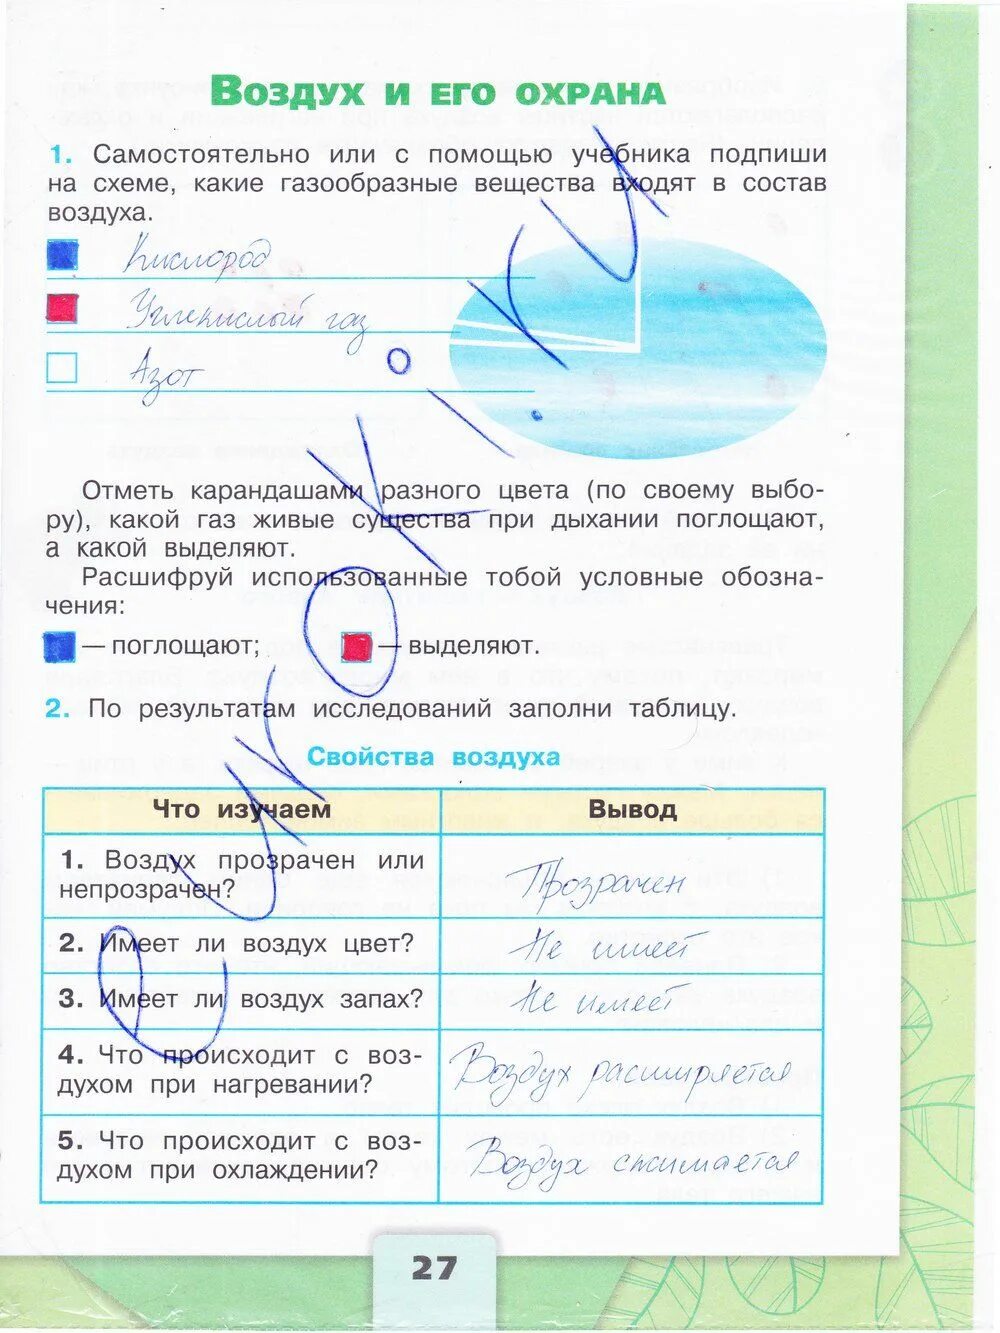 Воздух и его охрана
1. Самостоятельно или с помощью учебника подпиши
на схеме, какие газообразные вещества входят в состав
воздуха.
Кислород
Углекислый газ
Азот
Отметь карандашами разного цвета (по своему выбо-
ру), какой газ живые существа при дыхании поглощают,
а какой выделяют.
Расшифруй использованные тобой условные обозна-
чения:
— поглощают; — выделяют.
2. По результатам исследований заполни таблицу.
Свойства воздуха
Что изучаем Вывод
1. Воздух прозрачен или
непрозрачен?
Прозрачен
2. Имеет ли воздух цвет? Не имеет
3. Имеет ли воздух запах? Не имеет
4. Что происходит с воз-
духом при нагревании?
Воздух расширяется
5. Что происходит с воз-
духом при охлаждении?
Воздух сжимается
27